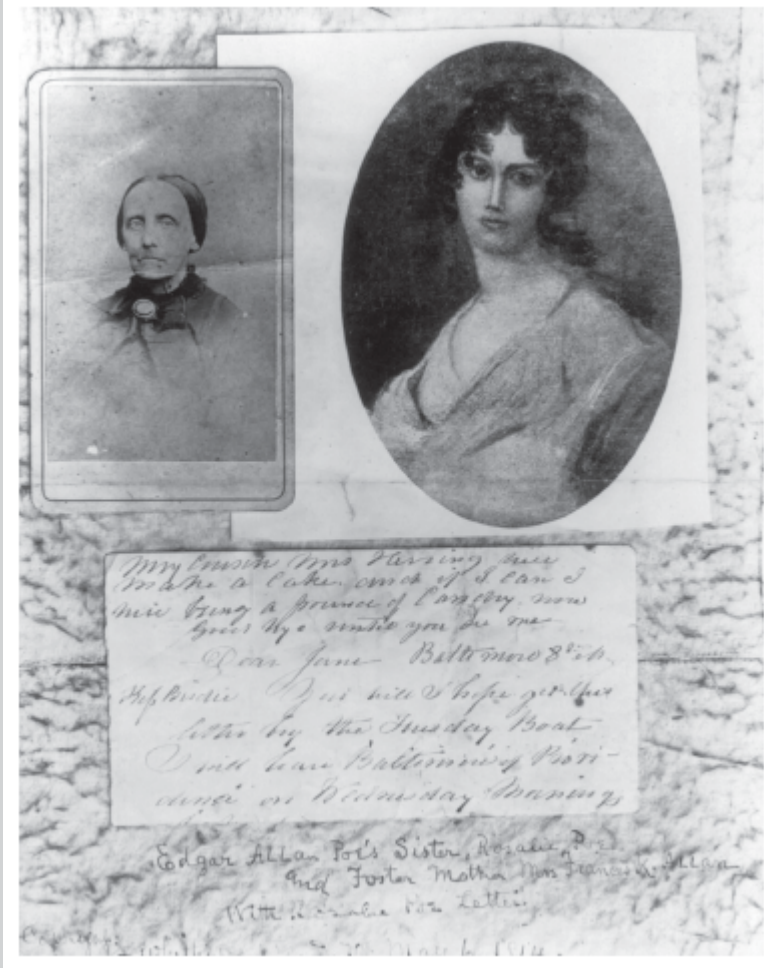 My Cousin Mrs Herring will
make a Cake and if I can I
will bring a pound of Candy now
Good bye until you see me
Dear Jane Baltimore 8th
You will I hope get this
letter by the Tuesday Boat
I will leave Baltimore if Provi-
dence on Wednesday Morning
Edgar Allan Poe's Sister, Rosalie Poe
and Foster Mother Mrs Frances K. Allan
With Rosalie Poe Letter